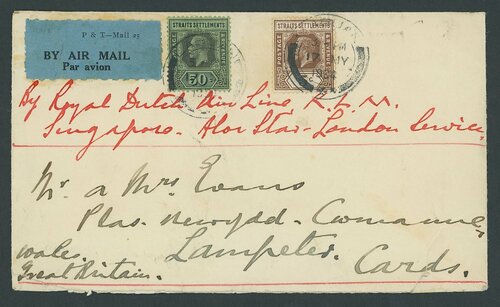 P & T—Mail 25
BY AIR MAIL
Par avion
STRAITS SETTLEMENTS
POSTAGE REVENUE
50
STRAITS SETTLEMENTS
POSTAGE REVENUE
By Royal Dutch Air Line K.L.M.
Singapore - Alor Star - London Service
Mr a Mrs Evans
Plas. Newydd. Cwmanne
Lampeter. Cards.
Wales.
Great Britain.